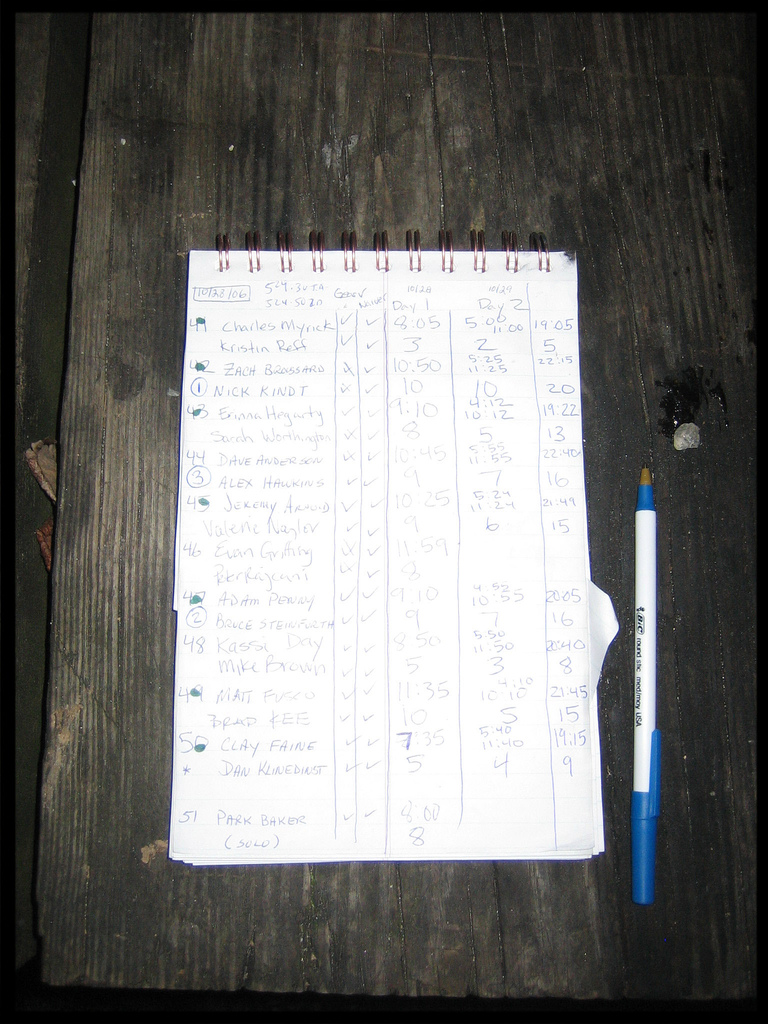 10/28/06 10/28 10/29
Day 1 Day 2
Charles Myrick ✓ ✓ 8:05 5:00 11:00 19:05
Kristin Reff ✓ ✓ 3 2 5
42 ZACH BROSSARD X ✓ 10:50 5:25 11:25 22:15
1 NICK KINDT X ✓ 10 10 20
43 Erinna Hegarty ✓ ✓ 9:10 4:12 10:12 19:22
Sarah Worthington X ✓ 8 5 13
44 DAVE ANDERSON X ✓ 10:45 5:55 11:55 22:40
3 ALEX HAWKINS ✓ ✓ 9 7 16
45 JEREMY ARNOLD ✓ ✓ 10:25 5:24 11:24 21:49
Valerie Naylor ✓ ✓ 9 6 15
46 Evan Griffing X ✓ 11:59
8
47 ADAM PENNY ✓ ✓ 9:10 4:52 10:55 20:05
2 BRUCE STEINFURTH ✓ ✓ 9 7 16
48 Kassi Day ✓ ✓ 8:50 5:50 11:50 20:40
Mike Brown ✓ ✓ 5 3 8
49 MATT FUSCO ✓ ✓ 11:35 4:10 10:10 21:45
BRAD KEE ✓ ✓ 10 5 15
50 CLAY FAINE ✓ ✓ 7:35 5:40 11:40 19:15
* DAN KLINEDINST ✓ ✓ 5 4 9
51 PARK BAKER ✓ ✓ 8:00
(SOLO) 8
BIC round stic med/moy USA